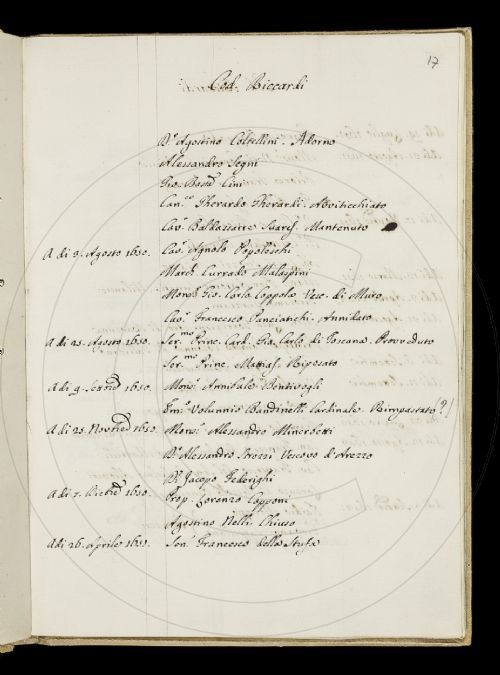 17
Cod. Riccardi
Dr. Agostino Coltellini. Adorno
Alessandro Segni
Gio. Batta Cini
Canco Gherardo Gherardi. Avviticchiato
Cavr Baldassarre Suares. Mantenuto
A di 3. Agosto 1650. Cavr Agnolo Popoleschi
March. Currado Malaspini
Monsr Gio. Carlo Coppola Vesc. di Muro
Cavr Francesco Panciatichi. Annidato
A di 25. Agosto 1650. Sermo Princ. Card. Gio. Carlo di Toscana. Provveduto
Sermo Princ. Mattias. Riposato
A di 9. Settre 1650. Monsr Annibale Bentivogli
Emo Volunnio Bandinelli Cardinale. Rimpastato (?)
A di 25. Novre 1650. Monsr Alessandro Minerbetti
Br Alessandro Strozzi Vescovo d'Arezzo
Br Jacopo Federighi
A di 7. Dicbre 1650. Prop. Lorenzo Capponi
Agostino Nelli. Chiuso
A di 26. Aprile 1651. Senr Francesco della Stufa